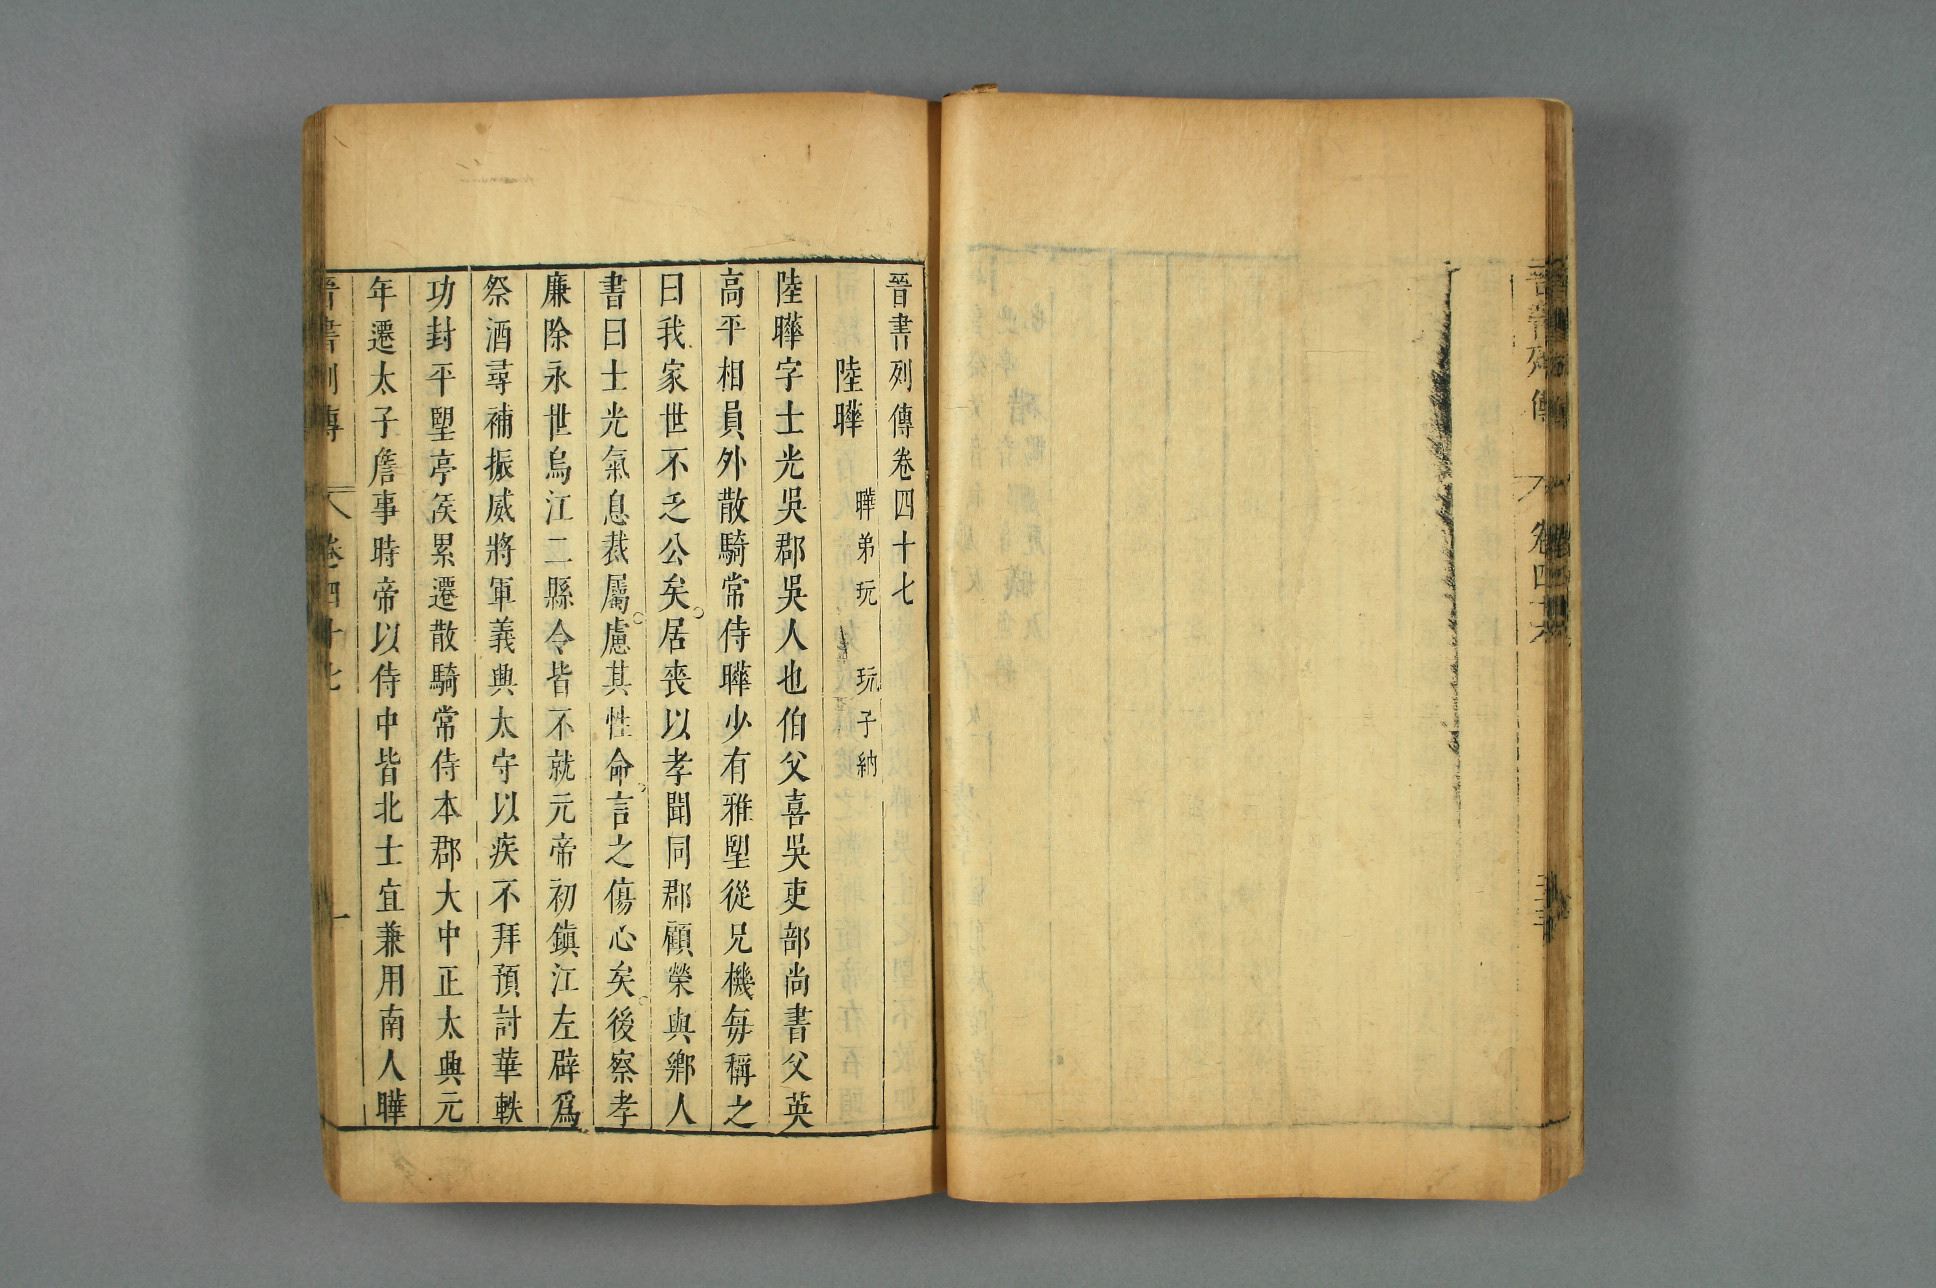 晉書列傳卷四十七
陸曄 曄弟玩 玩子納
陸曄字士光吳郡吳人也伯父喜吳吏部尚書父英
高平相員外散騎常侍曄少有雅望從兄機每稱之
曰我家世不乏公矣居喪以孝聞同郡顧榮與鄉人
書曰士光氣息裁屬慮其性命言之傷心矣後察孝
廉除永世烏江二縣令皆不就元帝初鎮江左辟爲
祭酒尋補振威將軍義興太守以疾不拜預討華軼
功封平望亭侯累遷散騎常侍本郡大中正太興元
年遷太子詹事時帝以侍中皆北士宜兼用南人曄
晉書列傳 卷四十七 一